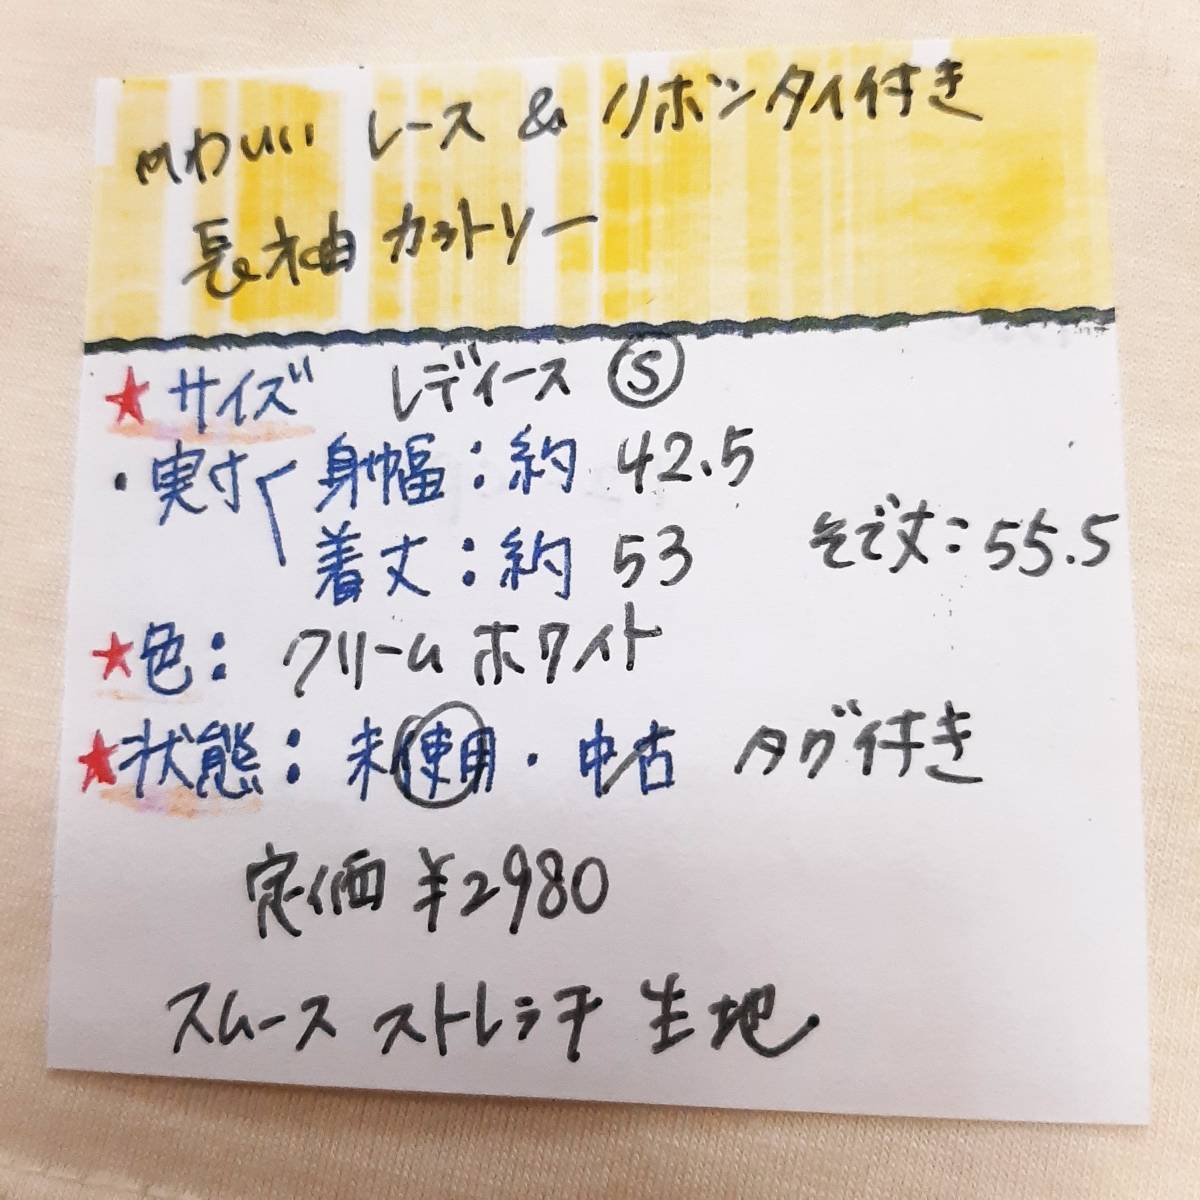 かわいい レース & リボンタイ付き
長袖 カットソー
★サイズ レディース Ⓢ
・実寸 身幅:約 42.5
着丈:約 53 そで丈:55.5
★色: クリームホワイト
★状態: 未使用・中古 タグ付き
定価 ¥2980
スムース ストレッチ 生地